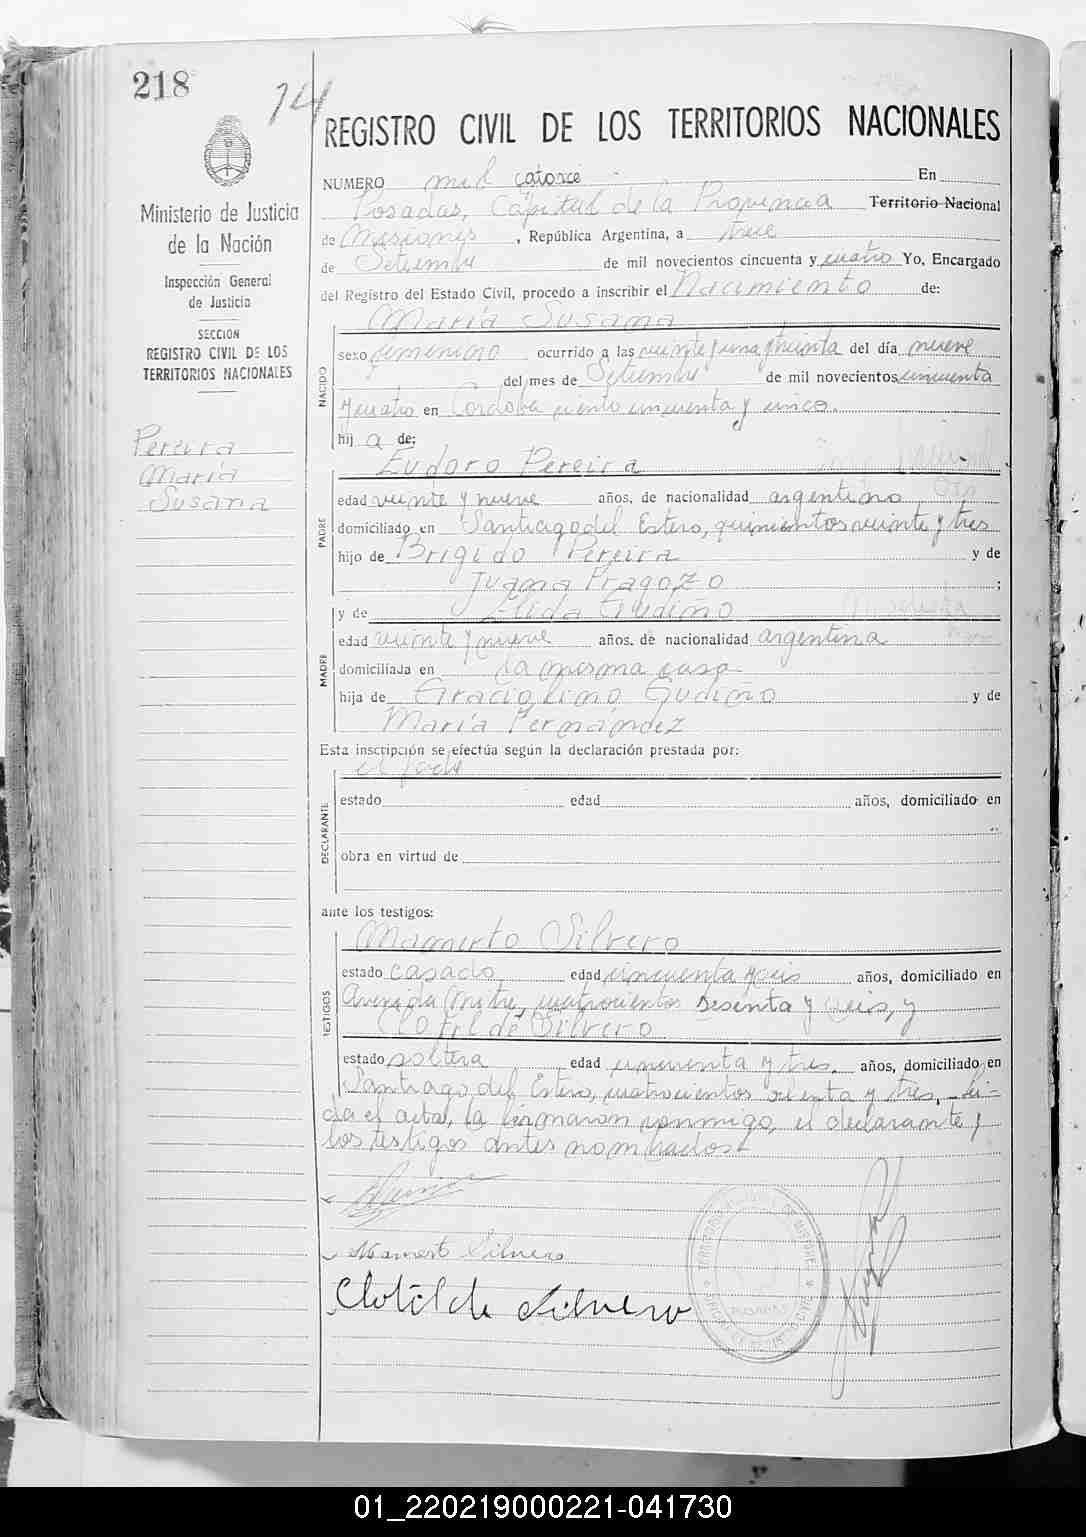 218
14
REGISTRO CIVIL DE LOS TERRITORIOS NACIONALES
Ministerio de Justicia
de la Nación
Inspección General
de Justicia
SECCION
REGISTRO CIVIL DE LOS
TERRITORIOS NACIONALES
Pereira
María
Susana
NUMERO mil catorce En
Posadas, Capital de la Provincia Territorio Nacional
de Misiones, República Argentina, a trece
de Setiembre de mil novecientos cincuenta y cuatro Yo, Encargado
del Registro del Estado Civil, procedo a inscribir el Nacimiento de:
María Susana
NACIDO
sexo femenino ocurrido a las veinte y una y treinta del día nueve
del mes de Setiembre de mil novecientos cincuenta
y cuatro en Córdoba ciento cincuenta y cinco.
hij a de:
Eudoro Pereira
PADRE
edad veinte y nueve años, de nacionalidad argentino
domiciliado en Santiago del Estero, quinientos veinte y tres
hijo de Brigido Pereira y de
Juana Fragozo ;
y de Elida Gudiño
MADRE
edad veinte y nueve años, de nacionalidad argentina
domiciliada en la misma casa
hija de Graciolino Gudiño y de
María Fernández
Esta inscripción se efectúa según la declaración prestada por:
el padre
DECLARANTE
estado edad años, domiciliado en
obra en virtud de
ante los testigos:
Mamerto Silvero
TESTIGOS
estado casado edad cincuenta y seis años, domiciliado en
Avenida Mitre, cuatrocientos sesenta y seis, y
Clotilde Silvero
estado soltera edad cincuenta y tres. años, domiciliado en
Santiago del Estero, cuatrocientos ochenta y tres, - Lei-
da el acta, la firmaron conmigo, el declarante y
los testigos antes nombrados.-
Mamerto Silvero
Clotilde Silvero
POSADAS
01_220219000221-041730